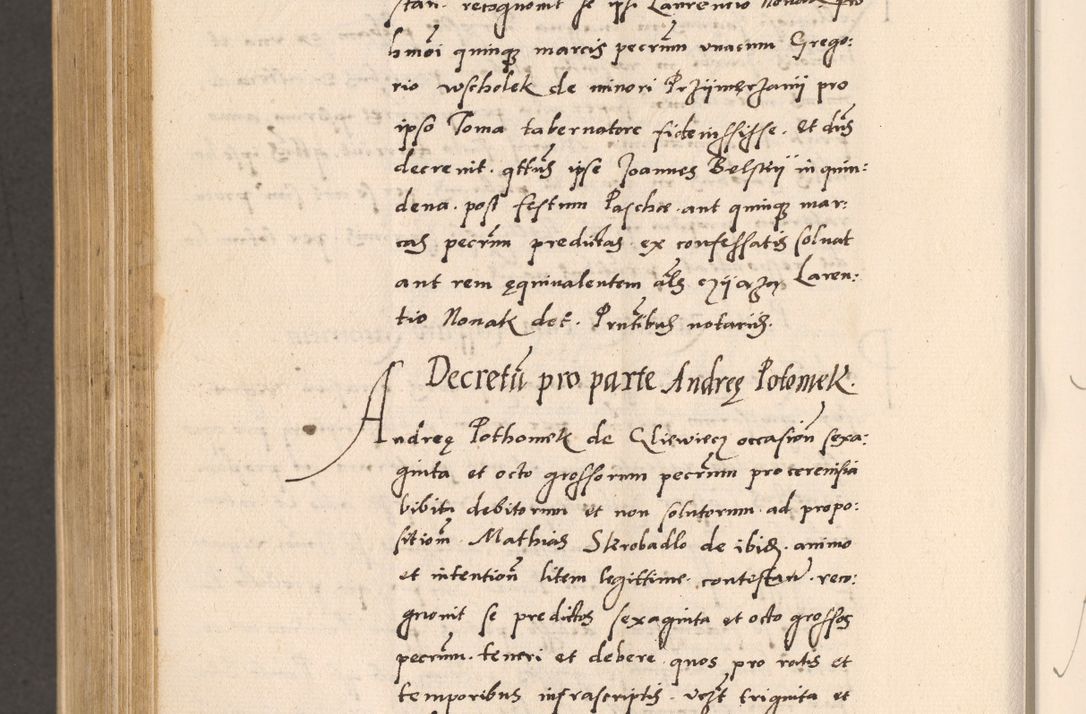 stan. recognovit se ipsi Laurencio Novak pro
hmõi quinq marcis pecrũm unacum Grego:
rio wscholek de minori Przijmerzanij pro
ipso Toma tabernatore fideiussisse. Et dñs
decrevit. qttũs ipse Joannes Belskij in quin:
dena. post festum Paschæ aut quinq mar:
cas pecrũm predictas ex confessatis solvat
aut rem ęquivalentem als Laren:
tio Novak det. Prñtibus notariis.
Decretũ pro parte Andreę Potomek.
Andreę Pothomek de Gliewiecz occasioñ sexa:
ginta et octo grossorum pecrũm pro cerevisia
bibita debitorum et non solutorum ad propo:
sitioñ Mathias Skrobadlo de ibidẽ. animo
et intentioñ litem legittime. contestan. reco:
gnovit se predictos sexaginta et octo grossos
pecrũm. teneri et debere. quos pro ratis et
temporibus infrascriptis. vczt triginta et